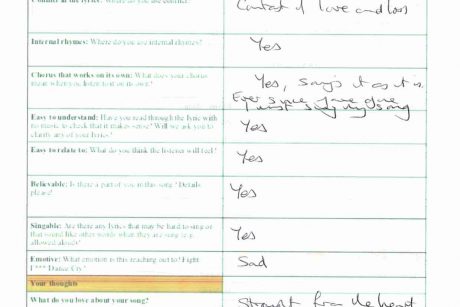 Conflict in the lyrics: Where do you use conflict?
Context of love and loss
Internal rhymes: Where do you use internal rhymes?
Yes
Chorus that works on its own: What does your chorus
mean when you listen to it on its own?
Yes, says it as it is.
Ever since
my song
Easy to understand: Have you read through the lyric with
no music to check that it makes sense? Will we ask you to
clarify any of your lyrics?
Yes
Easy to relate to: What do you think the listener will feel?
Yes
Believable: Is there a part of you in this song? Details
please!
Yes
Singable: Are there any lyrics that may be hard to sing or
that sound like other words when they are sung (e.g.
allowed/aloud)?
Yes
Emotive: What emotion is this reaching out to? Fight
F*** Dance Cry?
Sad
Your thoughts
What do you love about your song?
Straight from the heart